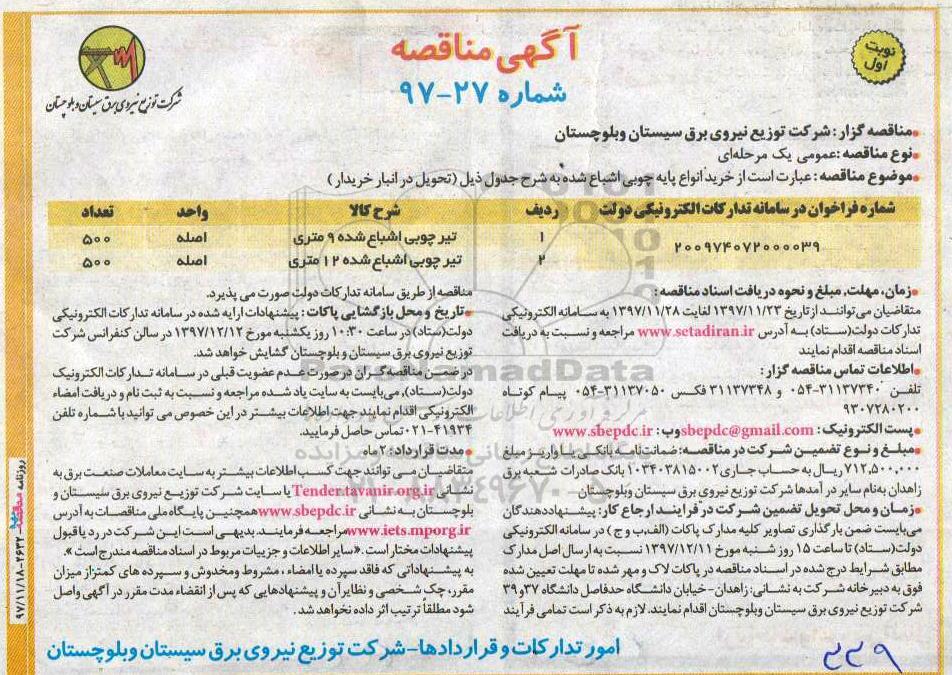 نوبت
اول
آگهی مناقصه
شماره ۲۷-۹۷
شرکت توزیع نیروی برق سیستان و بلوچستان
•مناقصه گزار: شرکت توزیع نیروی برق سیستان وبلوچستان
•نوع مناقصه: عمومی یک مرحله‌ای
•موضوع مناقصه: عبارت است از خرید انواع پایه چوبی اشباع شده به شرح جدول ذیل (تحویل در انبار خریدار)
شماره فراخوان در سامانه تدارکات الکترونیکی دولت ردیف شرح کالا واحد تعداد
۲۰۰۹۷۴۰۷۲۰۰۰۰۳۹
۱ تیر چوبی اشباع شده ۹ متری اصله ۵۰۰
۲ تیر چوبی اشباع شده ۱۲ متری اصله ۵۰۰
•زمان، مهلت، مبلغ و نحوه دریافت اسناد مناقصه:
متقاضیان می‌توانند از تاریخ ۱۳۹۷/۱۱/۲۳ لغایت ۱۳۹۷/۱۱/۲۸ به سامانه الکترونیکی
تدارکات دولت(ستاد) به آدرس www.setadiran.ir مراجعه و نسبت به دریافت
اسناد مناقصه اقدام نمایند
•اطلاعات تماس مناقصه گزار:
تلفن ۳۱۱۳۷۳۴۰-۰۵۴ و ۳۱۱۳۷۳۴۸ و فکس ۳۱۱۳۷۰۵۰-۰۵۴ پیام کوتاه
۹۳۰۷۲۸۰۲۰۰
•پست الکترونیک: sbepdc@gmail.com وب: www.sbepdc.ir
•مبلغ و نوع تضمین شرکت در مناقصه: ضمانت‌نامه بانکی یا واریز مبلغ
۷۱۲,۵۰۰,۰۰۰ ریال به حساب جاری ۰۱۰۳۴۰۳۸۱۵۰۰۲ بانک صادرات شعبه برق
زاهدان به‌نام سایر درآمدها شرکت توزیع نیروی برق سیستان وبلوچستان
•زمان و محل تحویل تضمین شرکت در فرایند ارجاع کار: پیشنهاددهندگان
می‌بایست ضمن بارگذاری تصاویر کلیه مدارک پاکات (الف،ب و ج) در سامانه الکترونیکی
دولت(ستاد) تا ساعت ۱۵ روز شنبه مورخ ۱۳۹۷/۱۲/۱۱ نسبت به ارسال اصل مدارک
مطابق شرایط درج شده در اسناد مناقصه در پاکات لاک و مهر شده تا مهلت تعیین شده
فوق به دبیرخانه شرکت به نشانی: زاهدان-خیابان دانشگاه حدفاصل دانشگاه ۳۷ و ۳۹
شرکت توزیع نیروی برق سیستان وبلوچستان اقدام نمایند. لازم به ذکر است تمامی فرآیند
مناقصه از طریق سامانه تدارکات دولت صورت می پذیرد.
•تاریخ و محل بازگشایی پاکات: پیشنهادات ارایه شده در سامانه تدارکات الکترونیکی
دولت(ستاد) در ساعت ۱۰:۳۰ روز یکشنبه مورخ ۱۳۹۷/۱۲/۱۲ در سالن کنفرانس شرکت
توزیع نیروی برق سیستان و بلوچستان گشایش خواهد شد.
در ضمن مناقصه گران در صورت عدم عضویت قبلی در سامانه تدارکات الکترونیک
دولت(ستاد)، می‌بایست به سایت یاد شده مراجعه و نسبت به ثبت نام و دریافت امضاء
الکترونیکی اقدام نمایند جهت اطلاعات بیشتر در این خصوص می توانید با شماره تلفن
۴۱۹۳۴-۰۲۱ تماس حاصل فرمایید.
•مدت قرارداد: ۲ ماه
متقاضیان می توانند جهت کسب اطلاعات بیشتر به سایت معاملات صنعت برق به
نشانی Tender.tavanir.org.ir یا سایت شرکت توزیع نیروی برق سیستان و
بلوچستان به نشانی www.sbepdc.ir همچنین پایگاه ملی مناقصات به آدرس
www.iets.mporg.ir مراجعه فرمایند. بدیهی است این شرکت در رد یا قبول
پیشنهادات مختار است. «سایر اطلاعات و جزییات مربوط در اسناد مناقصه مندرج است».
به پیشنهاداتی که فاقد سپرده یا امضاء، مشروط و مخدوش و سپرده های کمتر از میزان
مقرر، چک شخصی و نظایر آن و پیشنهادهایی که پس از انقضاء مدت مقرر در آگهی واصل
شود مطلقاً ترتیب اثر داده نخواهد شد.
امور تدارکات و قراردادها-شرکت توزیع نیروی برق سیستان وبلوچستان
۲۳۹
روزنامه مناقصه ۲۶۳۲-۹۷/۱۱/۱۸